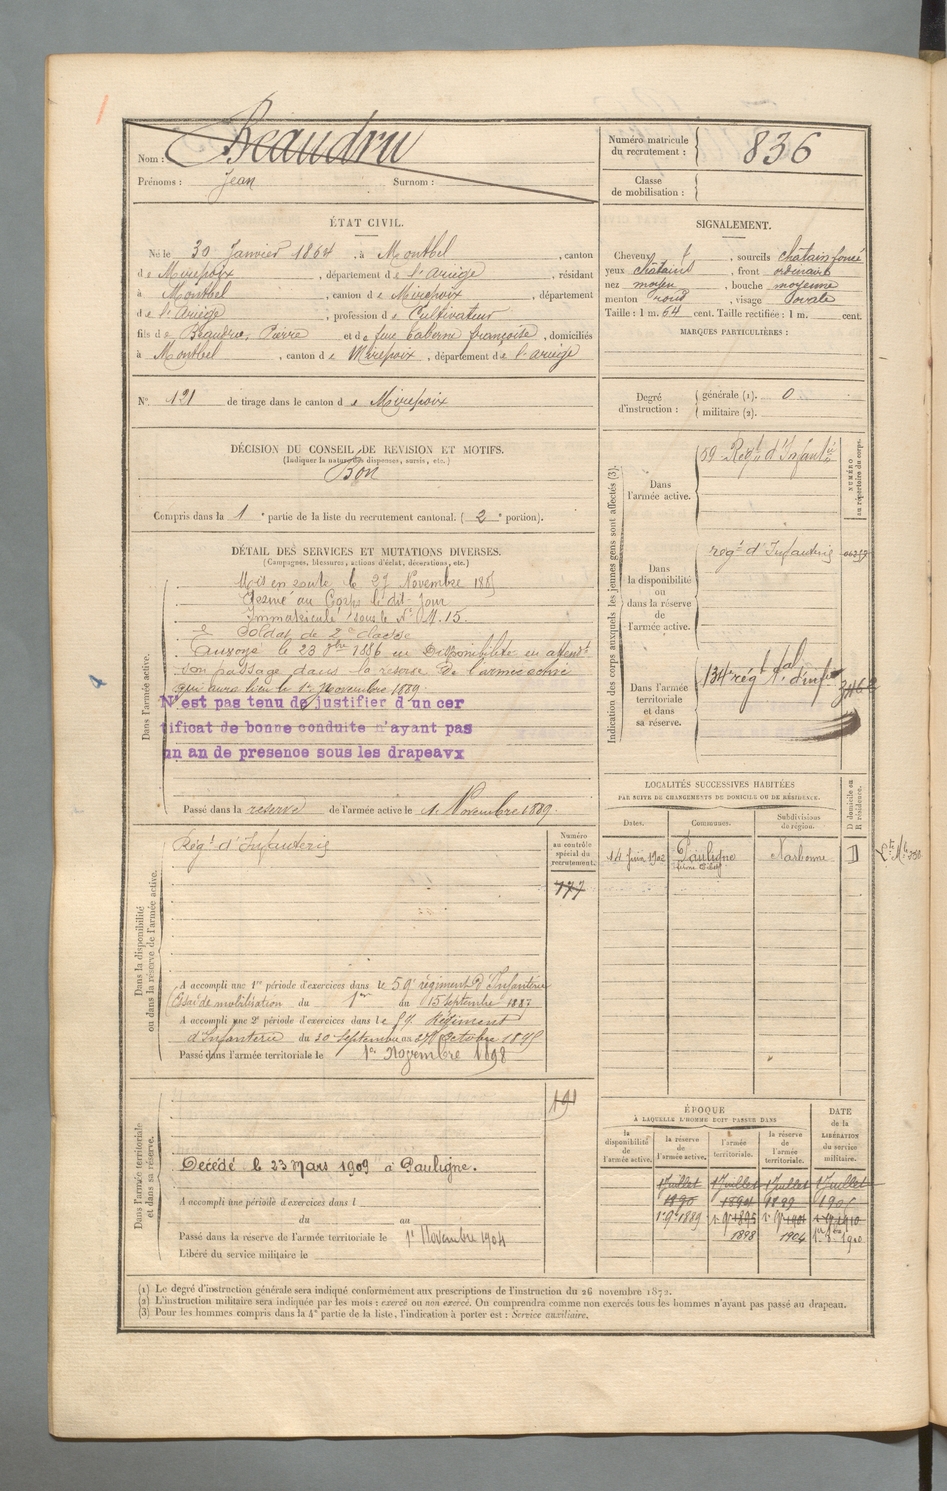 Nom : Beaudru
Prénoms : Jean Surnom :
Numéro matricule du recrutement : 836
Classe de mobilisation :
ÉTAT CIVIL.
Né le 30 Janvier 1864, à Montbel, canton
de Mirepoix, département de l'Ariège, résidant
à Montbel, canton de Mirepoix, département
de l'Ariège, profession de Cultivateur
fils de Beaudru, Pierre et de feue françoise, domiciliés
à Montbel, canton de Mirepoix, département de l'ariège
SIGNALEMENT.
Cheveux, sourcils chatain foncé
yeux chatains, front ordinaire
nez moyen, bouche moyenne
menton rond, visage ovale
Taille : 1 m. 64 cent. Taille rectifiée : 1 m. cent.
MARQUES PARTICULIÈRES :
N° 121 de tirage dans le canton de Mirepoix
Degré d'instruction : générale (1). 0
militaire (2).
DÉCISION DU CONSEIL DE REVISION ET MOTIFS.
(Indiquer la nature des dispenses, sursis, etc.)
Bon
Compris dans la 1e partie de la liste du recrutement cantonal. (2e portion).
Indication des corps auxquels les jeunes gens sont affectés (3).
NUMÉRO au répertoire du corps.
Dans l'armée active. 59 Régt d'Infantie
Dans la disponibilité ou dans la réserve de l'armée active. régt d'Infanterie
Dans l'armée territoriale et dans sa réserve. 134e rég tal d'inf
DÉTAIL DES SERVICES ET MUTATIONS DIVERSES.
(Campagnes, blessures, actions d'éclat, décorations, etc.)
Dans l'armée active.
Mis en route le 27 Novembre 1885
Arrivé au Corps le dit Jour
Immatriculé sous le N° M. 15.
Soldat de 2e classe
Envoyé le 23 8bre 1886 en Disponibilité en attendt
son passage dans la réserve de l'armée active
qui aura lieu le 1er Novembre 1889.
N'est pas tenu de justifier d'un cer
tificat de bonne conduite n'ayant pas
un an de presence sous les drapeaux
Passé dans la reserve de l'armée active le 1. Novembre 1889.
LOCALITÉS SUCCESSIVES HABITÉES
PAR SUITE DE CHANGEMENTS DE DOMICILE OU DE RÉSIDENCE.
D domicile ou R résidence.
Dates. Communes. Subdivisions de région.
14 Juin 1902 Pauligne Narbonne D
Dans la disponibilité ou dans la réserve de l'armée active.
Numéro au contrôle spécial du recrutement.
Régt d'Infanterie
177
A accompli une 1re période d'exercices dans le 59e régiment d'Infanterie
(Essai de mobilisation du 1er au 15 Septembre 1887
A accompli une 2e période d'exercices dans le 59. Régiment
d'Infanterie du 30 Septembre au 27 Octobre 1895
Passé dans l'armée territoriale le 1er Novembre 1898
Dans l'armée territoriale et dans sa réserve.
191
Décédé le 23 Mars 1909 à Pauligne.
A accompli une période d'exercices dans l
du au
Passé dans la réserve de l'armée territoriale le 1er Novembre 1904
Libéré du service militaire le
ÉPOQUE
À LAQUELLE L'HOMME DOIT PASSER DANS
DATE de la LIBÉRATION du service militaire.
la disponibilité de l'armée active. la réserve de l'armée active. l'armée territoriale. la réserve de l'armée territoriale.
1 Juillet 1 Juillet 1 Juillet 1 Juillet
1890
1889
1898 1904 1910
(1) Le degré d'instruction générale sera indiqué conformément aux prescriptions de l'instruction du 26 novembre 1872.
(2) L'instruction militaire sera indiquée par les mots : exercé ou non exercé. On comprendra comme non exercés tous les hommes n'ayant pas passé au drapeau.
(3) Pour les hommes compris dans la 4e partie de la liste, l'indication à porter est : Service auxiliaire.